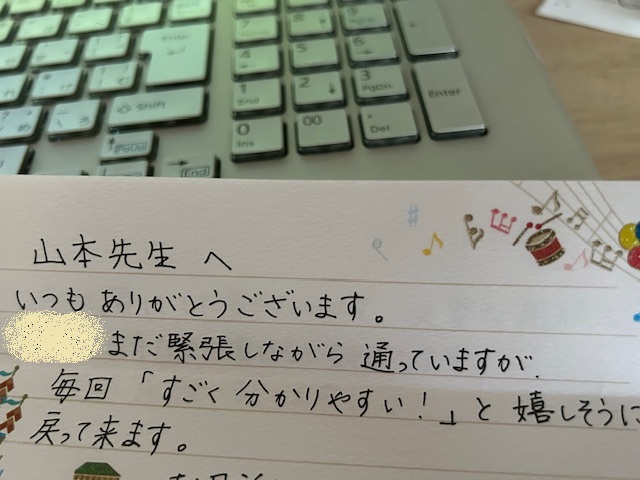 Shift
Enter
End
PgUp
7
8
9
4
5
6
1
End
2
3
PgDn
Enter
0
Ins
00
Del
山本先生 へ
いつも ありがとうございます。
まだ緊張しながら 通っていますが、
毎回 「すごく 分かりやすい!」と 嬉しそうに
戻って来ます。